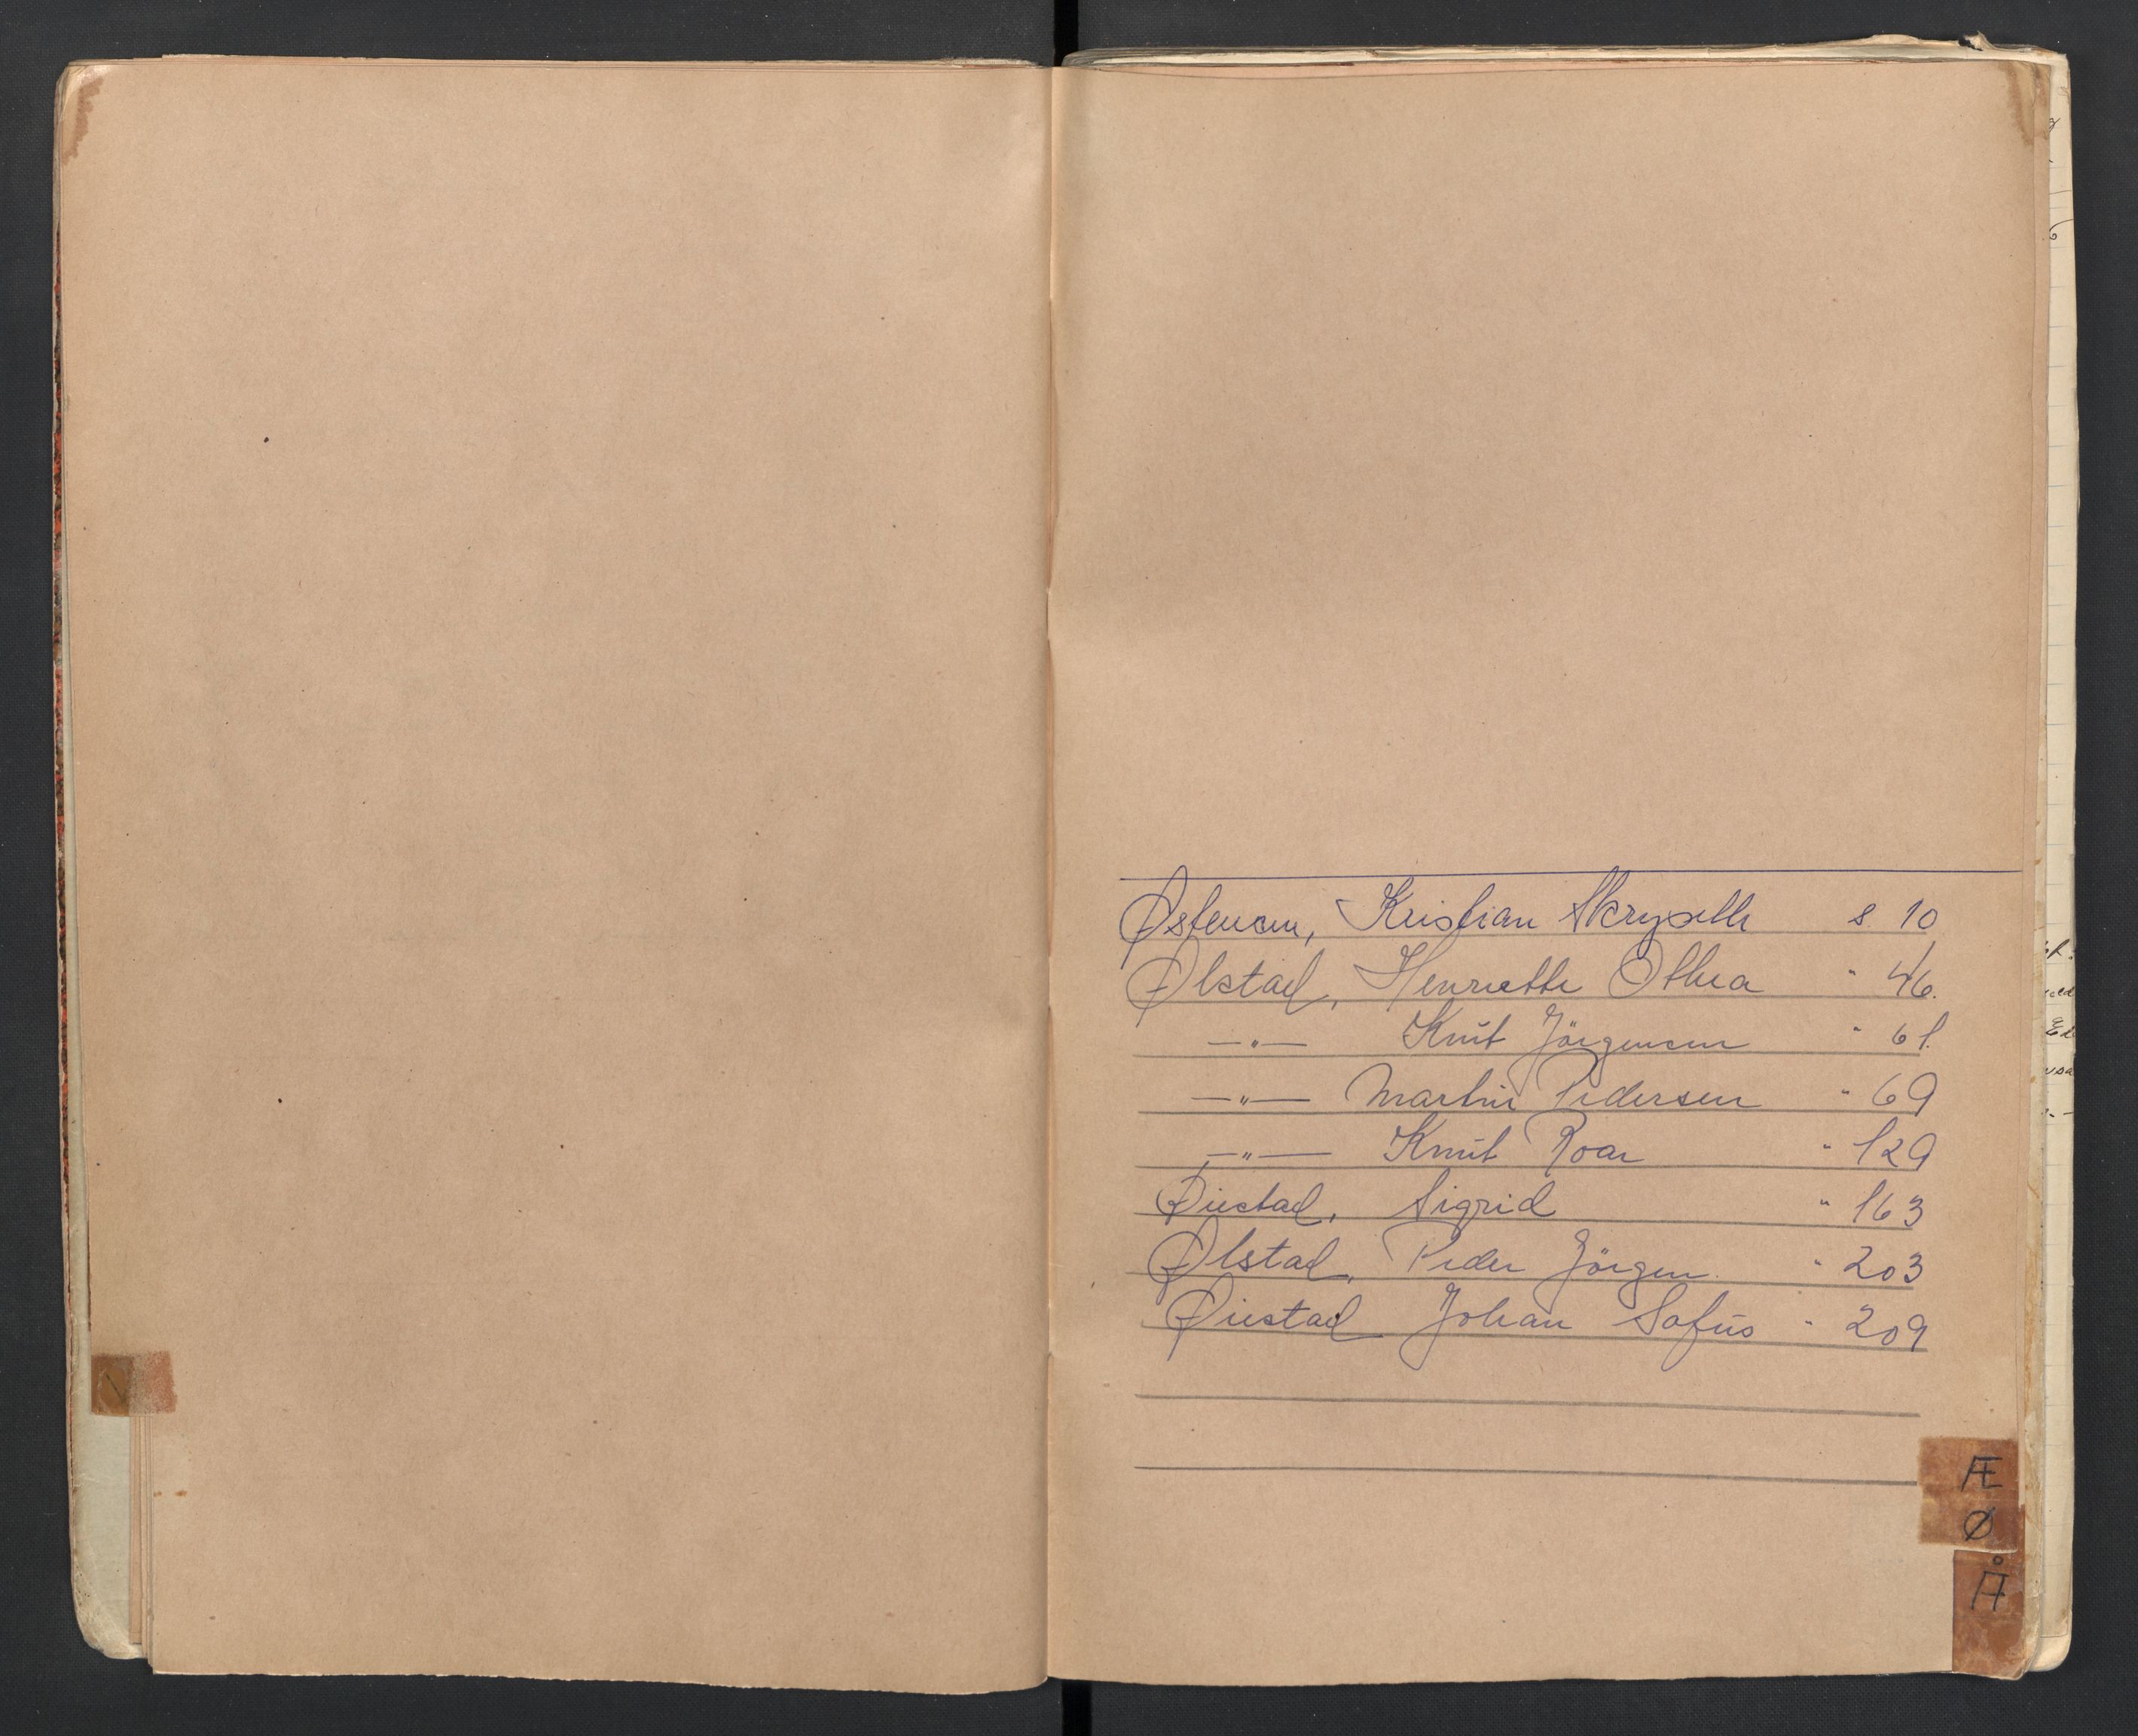 Østensen, Kristian Skrypeth s 10
Ølstad, Henriette Othea " 46.
—"— Knut Jörgensen " 61.
—"— Martin Pedersen " 69
—"— Knut Roar " 129
Øiestad, Sigrid " 163
Ølstad, Peder Jörgen. " 203
Øiestad Johan Sofus " 209
Æ
Ø
Å